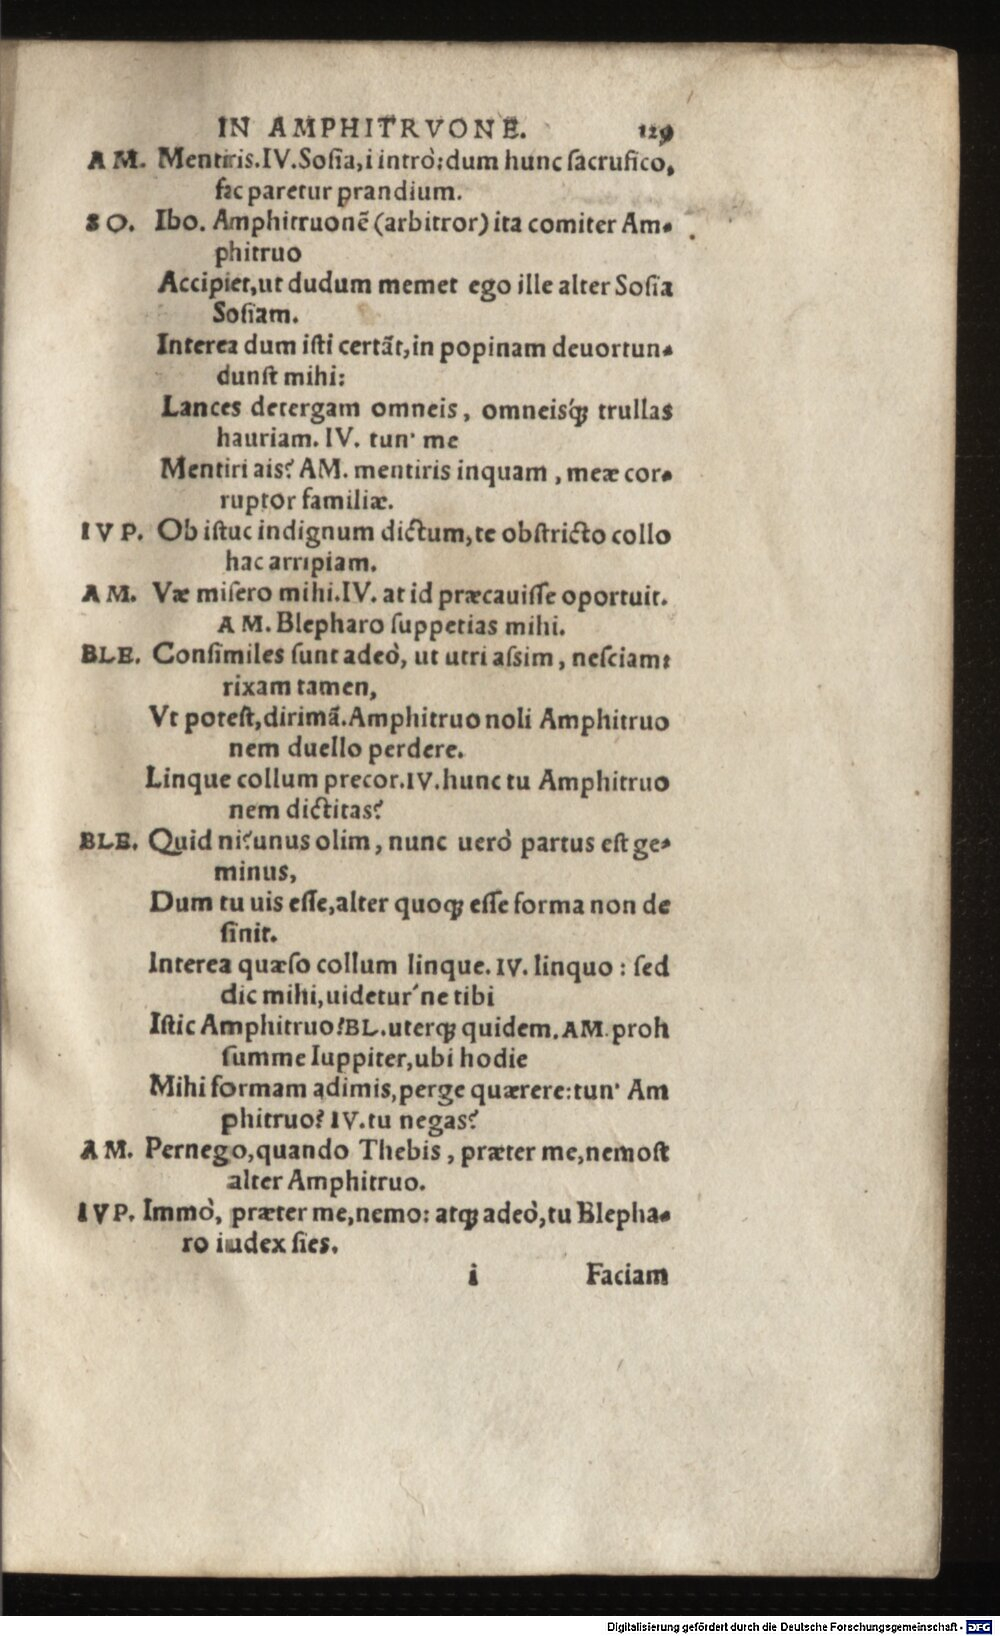 IN AMPHITRVONE. 129
AM. Mentiris. IV. Sosia, i intrò: dum hunc sacrufico,
fac paretur prandium.
SO. Ibo. Amphitruonē (arbitror) ita comiter Am-
phitruo
Accipiet, ut dudum memet ego ille alter Sosia
Sosiam.
Interea dum isti certāt, in popinam deuortun-
dunst mihi:
Lances detergam omneis, omneisq́ꝫ trullas
hauriam. IV. tun' me
Mentiri ais? AM. mentiris inquam, meæ cor-
ruptor familiæ.
IVP. Ob istuc indignum dictum, te obstricto collo
hac arripiam.
AM. Væ misero mihi. IV. at id præcauisse oportuit.
AM. Blepharo suppetias mihi.
BLE. Consimiles sunt adeò, ut utri assim, nesciam:
rixam tamen,
Vt potest, dirimā. Amphitruo noli Amphitruo
nem duello perdere.
Linque collum precor. IV. hunc tu Amphitruo
nem dictitas?
BLE. Quid ni? unus olim, nunc uerò partus est ge-
minus,
Dum tu uis esse, alter quoqꝫ esse forma non de
sinit.
Interea quæso collum linque. IV. linquo: sed
dic mihi, uidetur'ne tibi
Istic Amphitruo? BL. uterqꝫ quidem. AM. proh
summe Iuppiter, ubi hodie
Mihi formam adimis, perge quærere: tun' Am
phitruo? IV. tu negas?
AM. Pernego, quando Thebis, præter me, nemost
alter Amphitruo.
IVP. Immò, præter me, nemo: atqꝫ adeò, tu Blepha-
ro iudex sies.
i Faciam
Digitalisierung gefördert durch die Deutsche Forschungsgemeinschaft - DFG